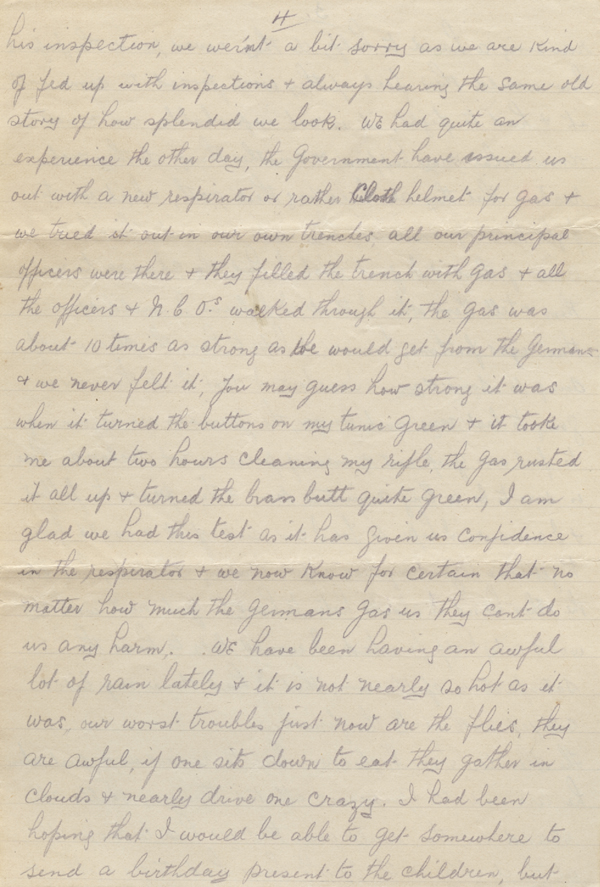 4
his inspection, we wer'nt a bit sorry as we are kind
of fed up with inspections + always hearing the same old
story of how splendid we look. We had quite an
experience the other day, the Government have issued us
out with a new respirator or rather Cloth helmet for gas +
we tried it out in our own trenches, all our principal
officers were there + they filled the trench with gas + all
the officers + N.C.O.s walked through it, the gas was
about 10 times as strong as we would get from the Germans
+ we never felt it, you may guess how strong it was
when it turned the buttons on my tunic green + it took
me about two hours cleaning my rifle, the gas rusted
it all up + turned the brass butt quite green, I am
glad we had this test as it has given us confidence
in the respirator + we now know for certain that no
matter how much the Germans gas us they cant do
us any harm. We have been having an awful
lot of rain lately + it is not nearly so hot as it
was, our worst troubles just now are the flies, they
are awful, if one sits down to eat they gather in
clouds + nearly drive one crazy. I had been
hoping that I would be able to get somewhere to
send a birthday present to the children, but